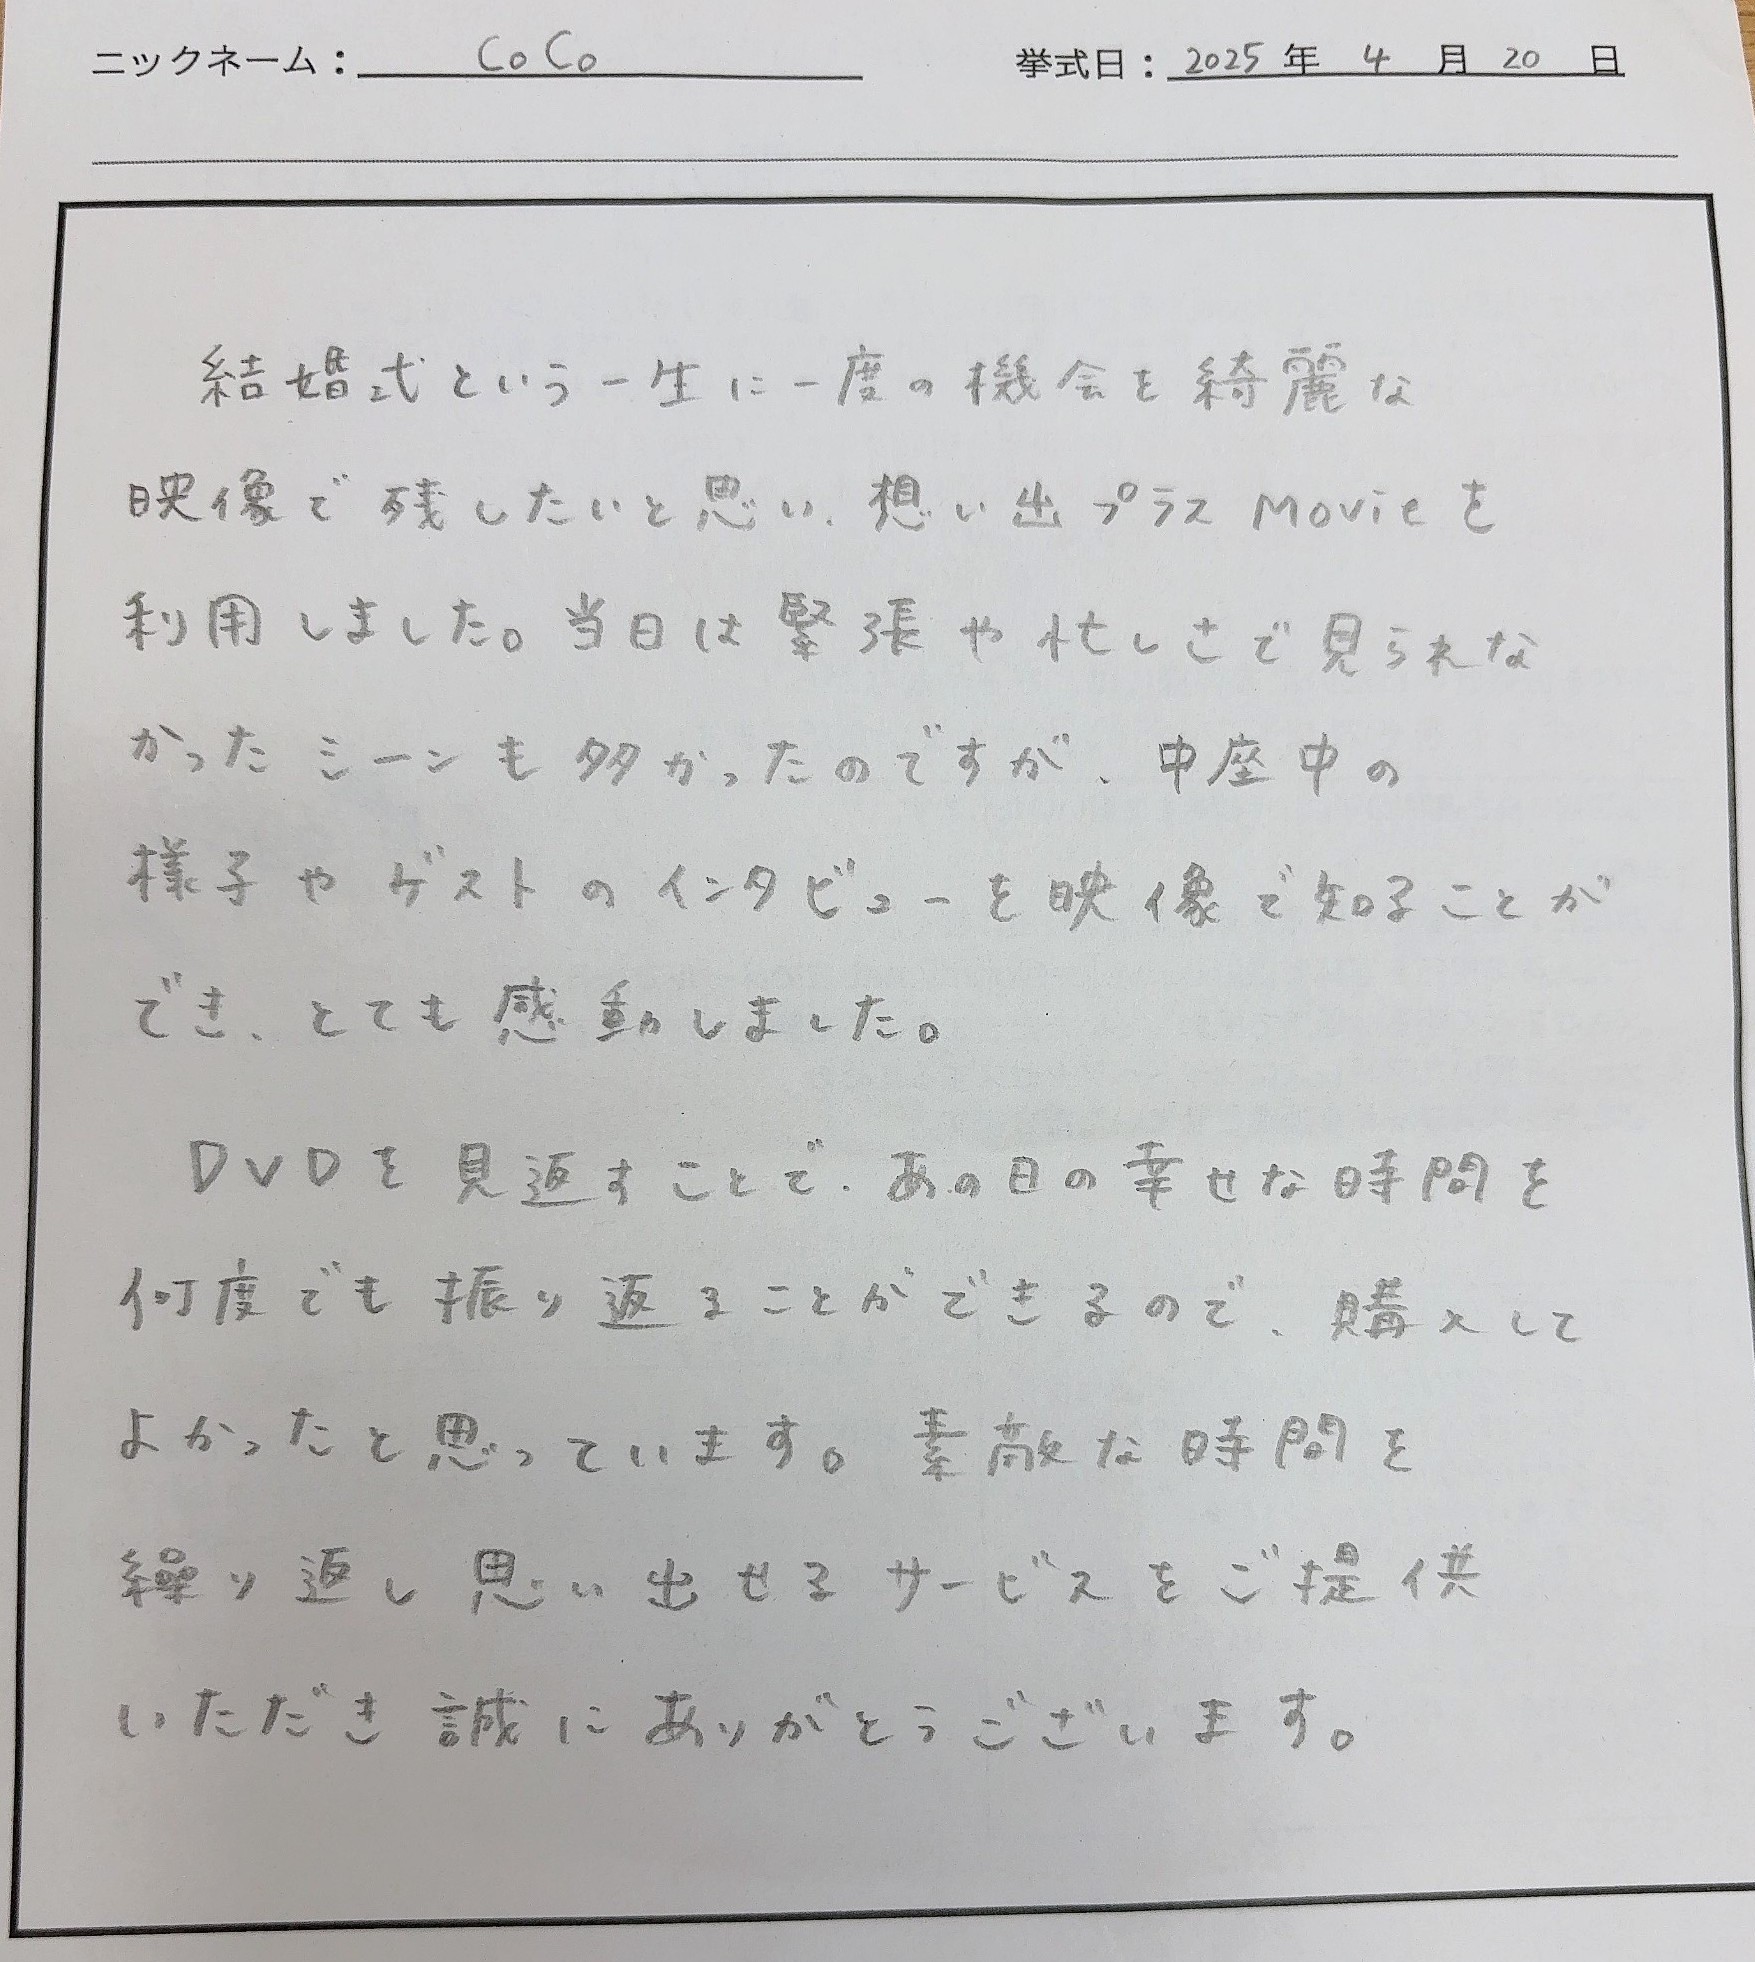 ニックネーム： CoCo 挙式日： 2025 年 4 月 20 日
結婚式という一生に一度の機会を綺麗な
映像で残したいと思い、想い出プラスMovieを
利用しました。当日は緊張や忙しさで見られな
かったシーンも多かったのですが、中座中の
様子やゲストのインタビューを映像で知ることが
でき、とても感動しました。
DVDを見返すことで、あの日の幸せな時間を
何度でも振り返ることができるので、購入して
よかったと思っています。素敵な時間を
繰り返し思い出せるサービスをご提供
いただき誠にありがとうございます。